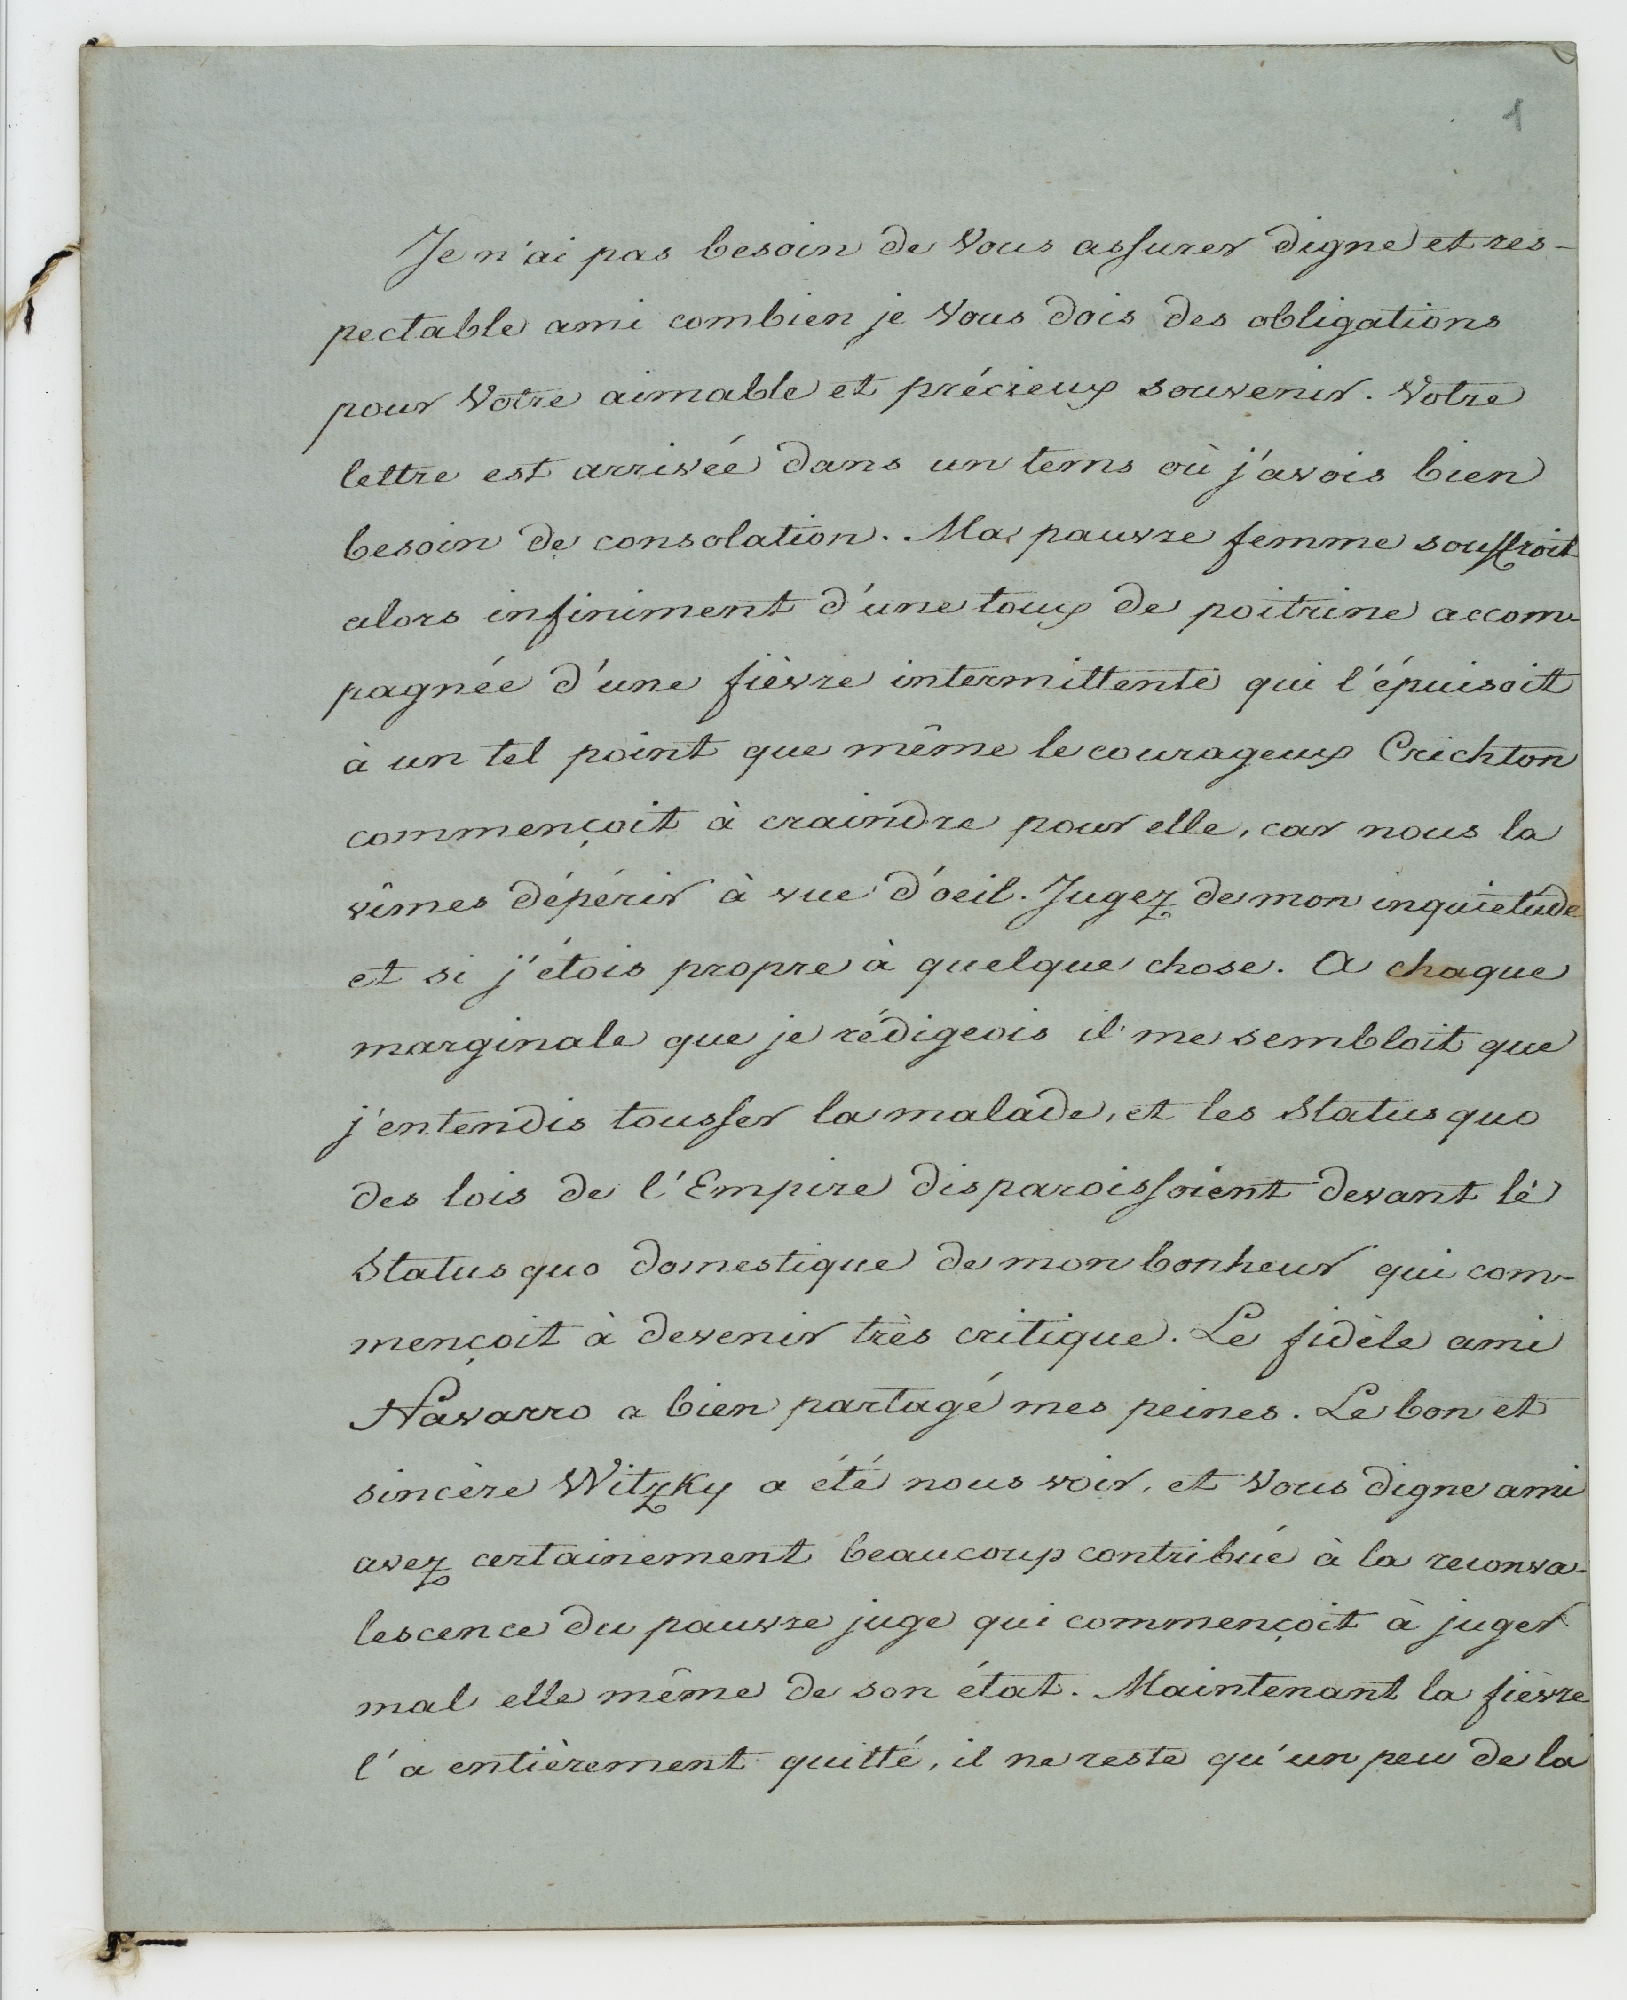 1
Je n'ai pas besoin de Vous assurer digne et res-
pectable ami combien je Vous dois des obligations
pour Votre aimable et précieux souvenir. Votre
lettre est arrivée dans un tems où j'avois bien
besoin de consolation. Ma pauvre femme souffroit
alors infiniment d'une toux de poitrine accom-
pagnée d'une fièvre intermittente qui l'épuisoit
à un tel point que même le courageux Crichton
commençoit à craindre pour elle, car nous la
vîmes dépérir à vue d'oeil. Jugez de mon inquietude
et si j'étois propre à quelque chose. A chaque
marginale que je rédigeois il me sembloit que
j'entendis tousser la malade, et les Status quo
des lois de l'Empire disparoissoient devant le
Status quo domestique de mon bonheur qui com-
mençoit à devenir très critique. Le fidèle ami
Navarro a bien partagé mes peines. Le bon et
sincère Witzky a été nous voir, et Vous digne ami
avez certainement beaucoup contribué à la reconva-
lescence du pauvre juge qui commençoit à juger
mal elle même de son état. Maintenant la fièvre
l'a entièrement quitté, il ne reste qu'un peu de la